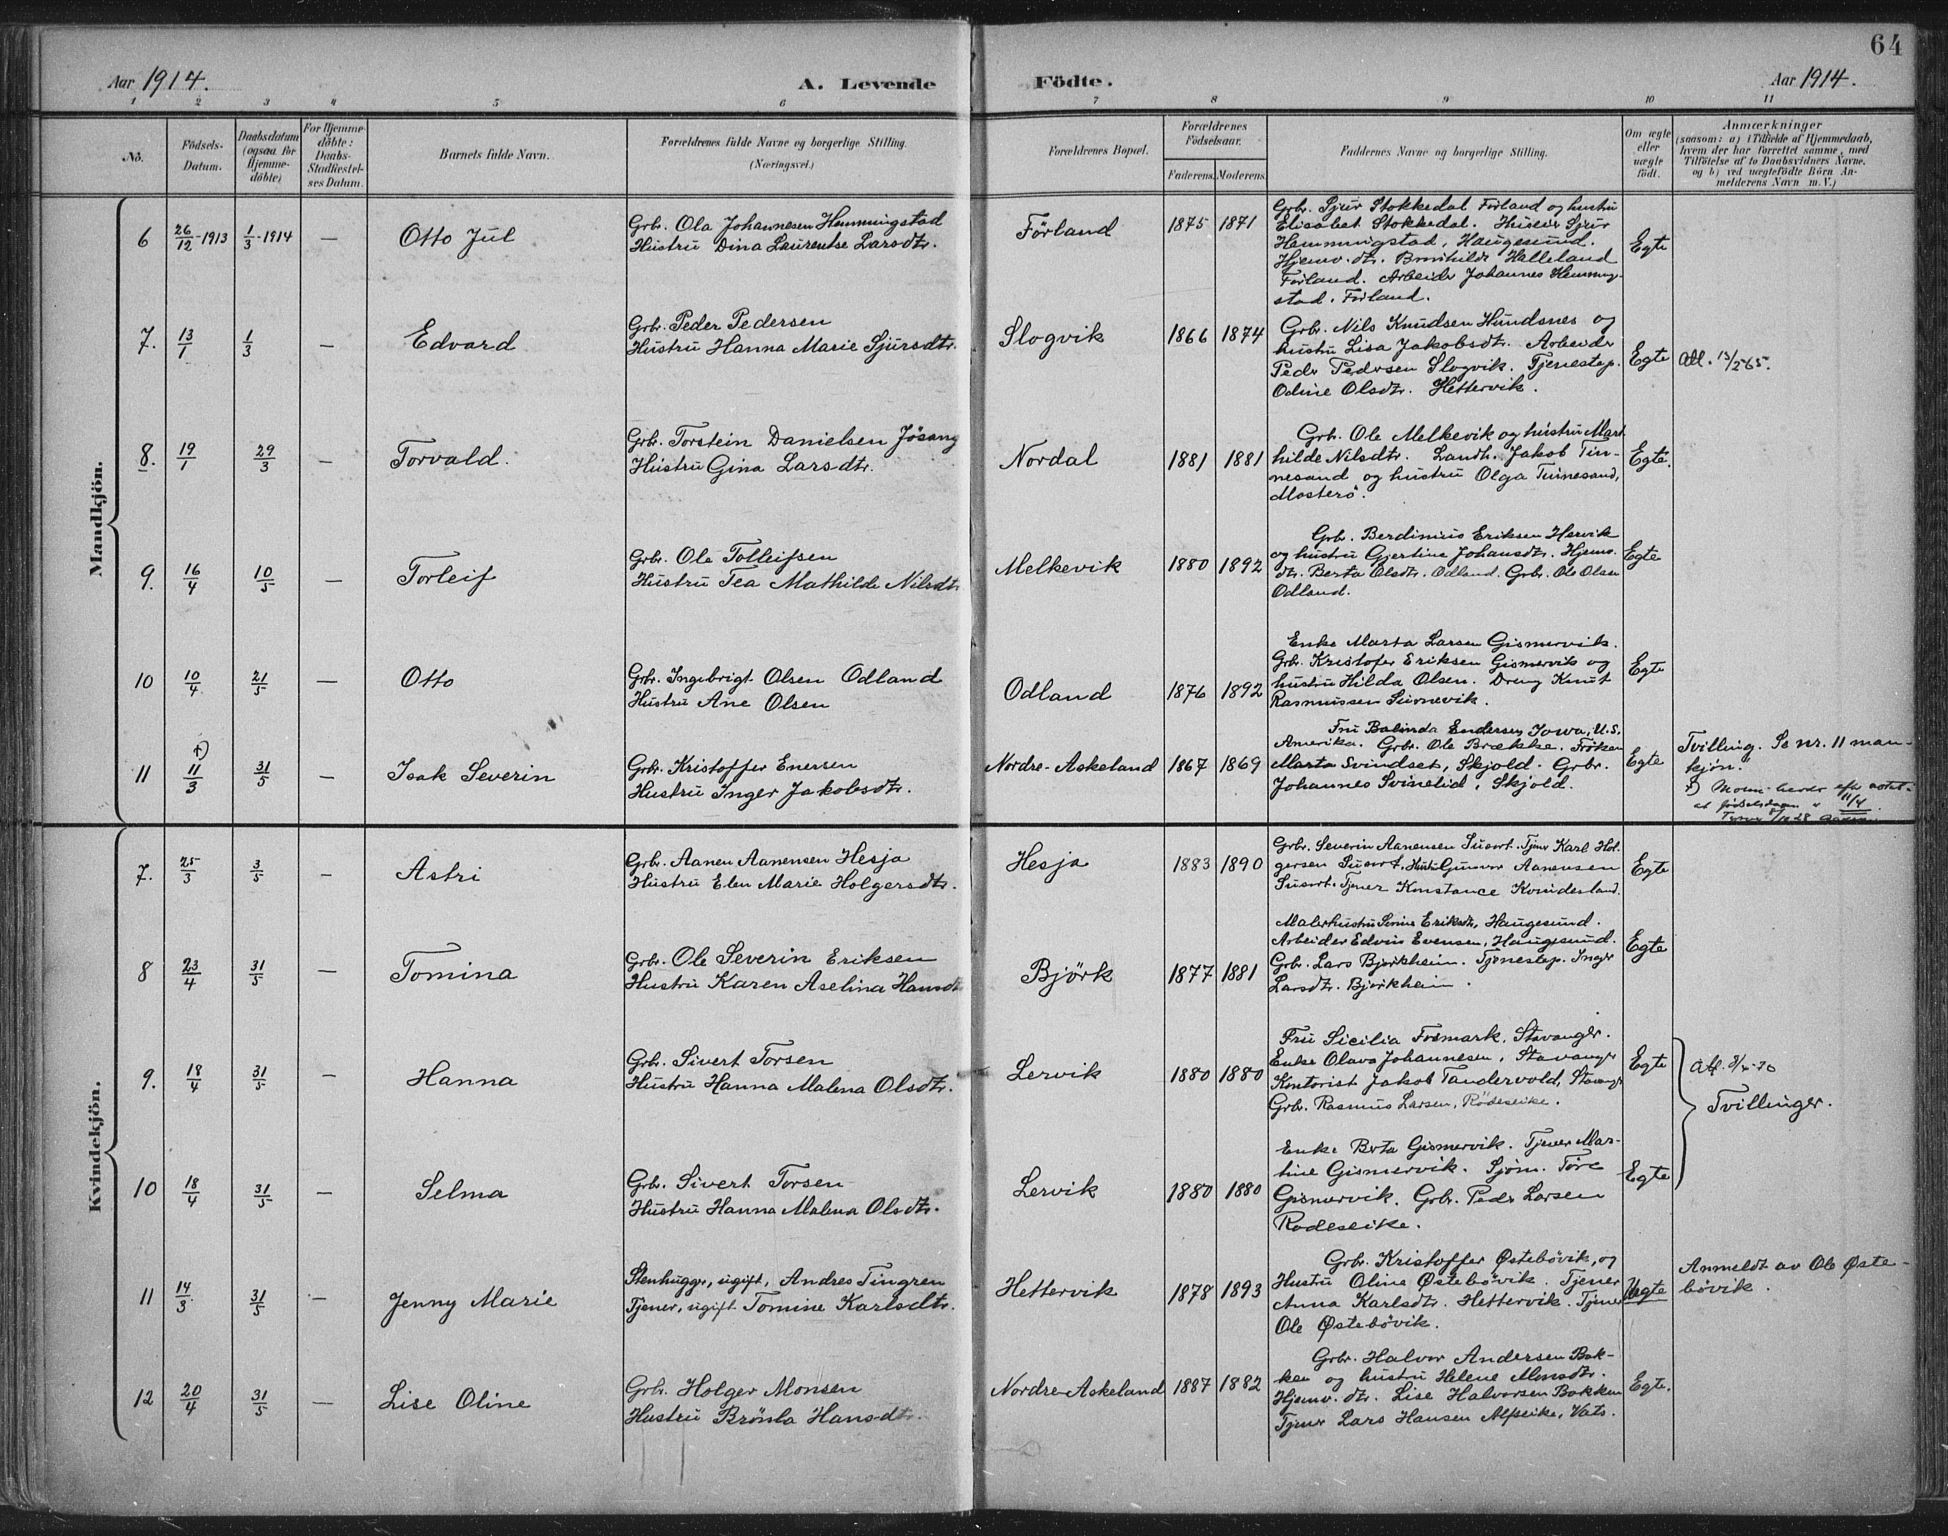 64
Aar 1914.
A. Levende Födte.
Aar 1914.
1 2 3 4 5 6 7 8 9 10 11
No.
Födsels-Datum.
Daabsdatum (ogsaa for Hjemme-döbte)
For Hjemme-döbte: Daabs-Stadfæstel-ses Datum.
Barnets fulde Navn.
Forældrenes fulde Navne og borgerlige Stilling.
(Næringsvei.)
Forældrenes Bopæl.
Forældrenes Födselsaar.
Faderens. Moderens.
Faddernes Navne og borgerlige Stilling.
Om ægte eller uægte födt.
Anmærkninger
(saasom: a) i Tilfælde af Hjemmedaab,
hvem der har forrettet samme, med
Tilföielse af to Daabsvidners Navne.
og b) ved uægtefödte Börn An-
melderens Navn m. V.)
Mandkjön.
6 26/12-1913 1/3-1914 — Otto Jul
Grbr. Ola Johannesen Hemmingstad
Hustru Dina Laurentse Larsdtr.
Förland 1875 1871
Grbr. Sjur Stokkedal Förland og hustru
Elisabet Stokkedal. Huseier Sjur
Hemmingstad, Haugesund.
Hjemv. dtr. Brunhilde Helleland
Förland. Arbeider Johannes Hemming-
stad. Förland.
Egte
7. 13/1 1/3 — Edvard
Grbr. Peder Pedersen
Hustru Hanna Marie Sjursdtr.
Slogvik 1866 1874
Grbr. Nils Knudsen Hundsnes og
hustru Lisa Jakobsdtr. Arbeider
Peder Pedersen Slogvik. Tjenestep.
Odine Olsdtr. Hettervik.
Egte
Att. 15/2 65.
8. 19/1 29/3 — Torvald.
Grbr. Torstein Danielsen Jösang
Hustru Gina Larsdtr.
Nordal 1881 1881
Grbr. Ole Melkevik og hustru Mart
hilde Nilsdtr. Landh. Jakob Tin-
nesand og hustru Olga Tinnesand,
Mosterö.
Egte.
9. 16/4 10/5 — Torleif
Grbr. Ole Tolleifsen
Hustru Tea Mathilde Nilsdtr.
Melkevik 1880 1892
Grbr. Berdinius Eriksen Hervik
og hustru Gjertine Johansdtr. Hjemv.
dtr. Berta Olsdtr. Odland. Grbr. Ole Olsen
Odland.
Egte
10 10/4 21/5 — Otto
Grbr. Ingebrigt Olsen Odland
Hustru Ane Olsen
Odland 1876 1892
Enke Marta Larsen Gismervik.
Grbr. Kristofer Eriksen Gismervik og
hustru Hilda Olsen. Dreng Knut
Rasmussen Sunnevik.
Egte
11 +) 11/3 31/5 — Isak Severin
Grbr. Kristoffer Enersen
Hustru Inger Jakobsdtr.
Nordre-Askeland 1867 1869
Fru Balinda Endersen, Iowa, U.S.
Amerika. Grbr. Ole Brække. Fröken
Marta Svindset, Skjold. Grbr.
Johannes Svinelid, Skjold.
Egte
Tvilling. Se nr. 11 man-
kjön.
+) Moren hevder
at fødselsdagen er 11/4
Tysvær 8/10 28
Kvindekjön.
7. 25/3 3/5 — Astri
Grbr. Aanen Aanensen Hesja
Hustru Elen Marie Holgersdtr.
Hesja 1883 1890
Grbr. Severin Aanensen Susort. Tjener Karl Hol-
gersen Susort. Hustru Gunvor Aanensen
Susort. Tjener Konstance Kvinnesland.
Egte
8 23/4 31/5 — Tomina
Grbr. Ole Severin Eriksen
Hustru Karen Aselina Hansdtr.
Bjørk 1877 1881
Malerhustru Serine Eriksdtr, Haugesund.
Arbeider Edvin Evensen, Haugesund.
Grbr. Lars Bjørkheim. Tjenestep. Inger
Larsdtr. Bjørkheim.
Egte
9. 18/4 31/5 — Hanna
Grbr. Sivert Torsen
Hustru Hanna Malena Olsdtr.
Lervik 1880 1880
Fru Sicilia Fosmark. Stavanger.
Enke Olava Johannesen, Stavanger
Kontorist Jakob Tandervold, Stavanger
Grbr. Rasmus Larsen, Rödeseike.
Egte
Att. 3/4-70
Tvillinger.
10 18/4 31/5 — Selma
Grbr. Sivert Torsen
Hustru Hanna Malena Olsdtr.
Lervik 1880 1880
Enke Berta Gismervik. Tjener Mar-
tine Gismervik. Sjöm. Tore
Gismervik. Grbr. Peder Larsen
Rødeseike.
Egte
11 14/3 31/5 — Jenny Marie
Stenhugger, ugift, Andres Tingren
Tjener, ugift Tomine Karlsdtr.
Hettervik 1878 1893
Grbr. Kristoffer Østebövik, og
Hustu Oline Østebövik. Tjener
Anna Karlsdtr. Hettervik. Tjener
Ole Østebövik.
Uegte
Anmeldt av Ole Øste-
bövik.
12 20/4 31/5 — Lise Oline
Grbr. Holger Monsen
Hustru Brönla Hansdtr.
Nordre-Askeland 1887 1882
Grbr. Halvor Andersen Bak-
ken og hustru Helene Monsdtr.
Hjemv. dtr. Lise Halvorsen Bakken
Tjener Lars Hansen Alfseike, Vats.
Egte.